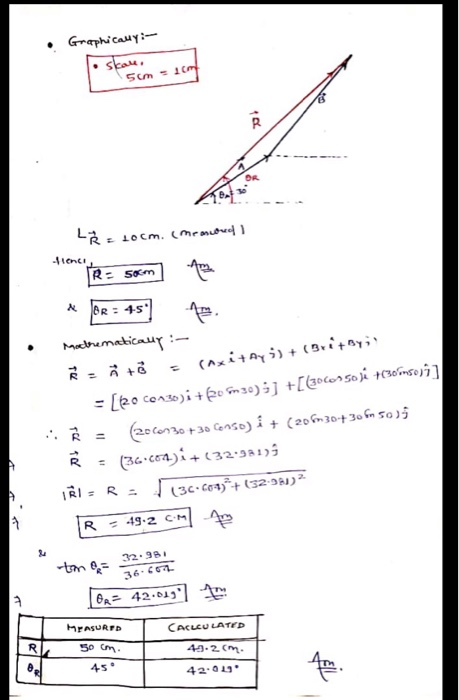 • Graphically:-
• Scale,
5cm = 1cm
R⃗
B⃗
A
θR
θA = 30°
L R⃗ = 10cm. (measured)
Hence, R = 50cm Ans
& θR = 45° Ans.
• Mathematically:-
R⃗ = A⃗ + B⃗ = (Ax î + Ay ĵ) + (Bx î + By ĵ)
= [(20 cos30) î + (20 sin30) ĵ] + [(30 cos50) î + (30 sin50) ĵ]
∴ R⃗ = (20cos30 + 30 cos50) î + (20 sin30 + 30 sin 50) ĵ
R⃗ = (36.604) î + (32.981) ĵ
|R⃗| = R = √(36.604)² + (32.981)²
R = 49.2 C.M Ans
&
tan θR = 32.981 / 36.604
θR = 42.019° Ans
MEASURED CACLCULATED
R 50 cm. 49.2 cm.
θR 45° 42.019°
Ans.